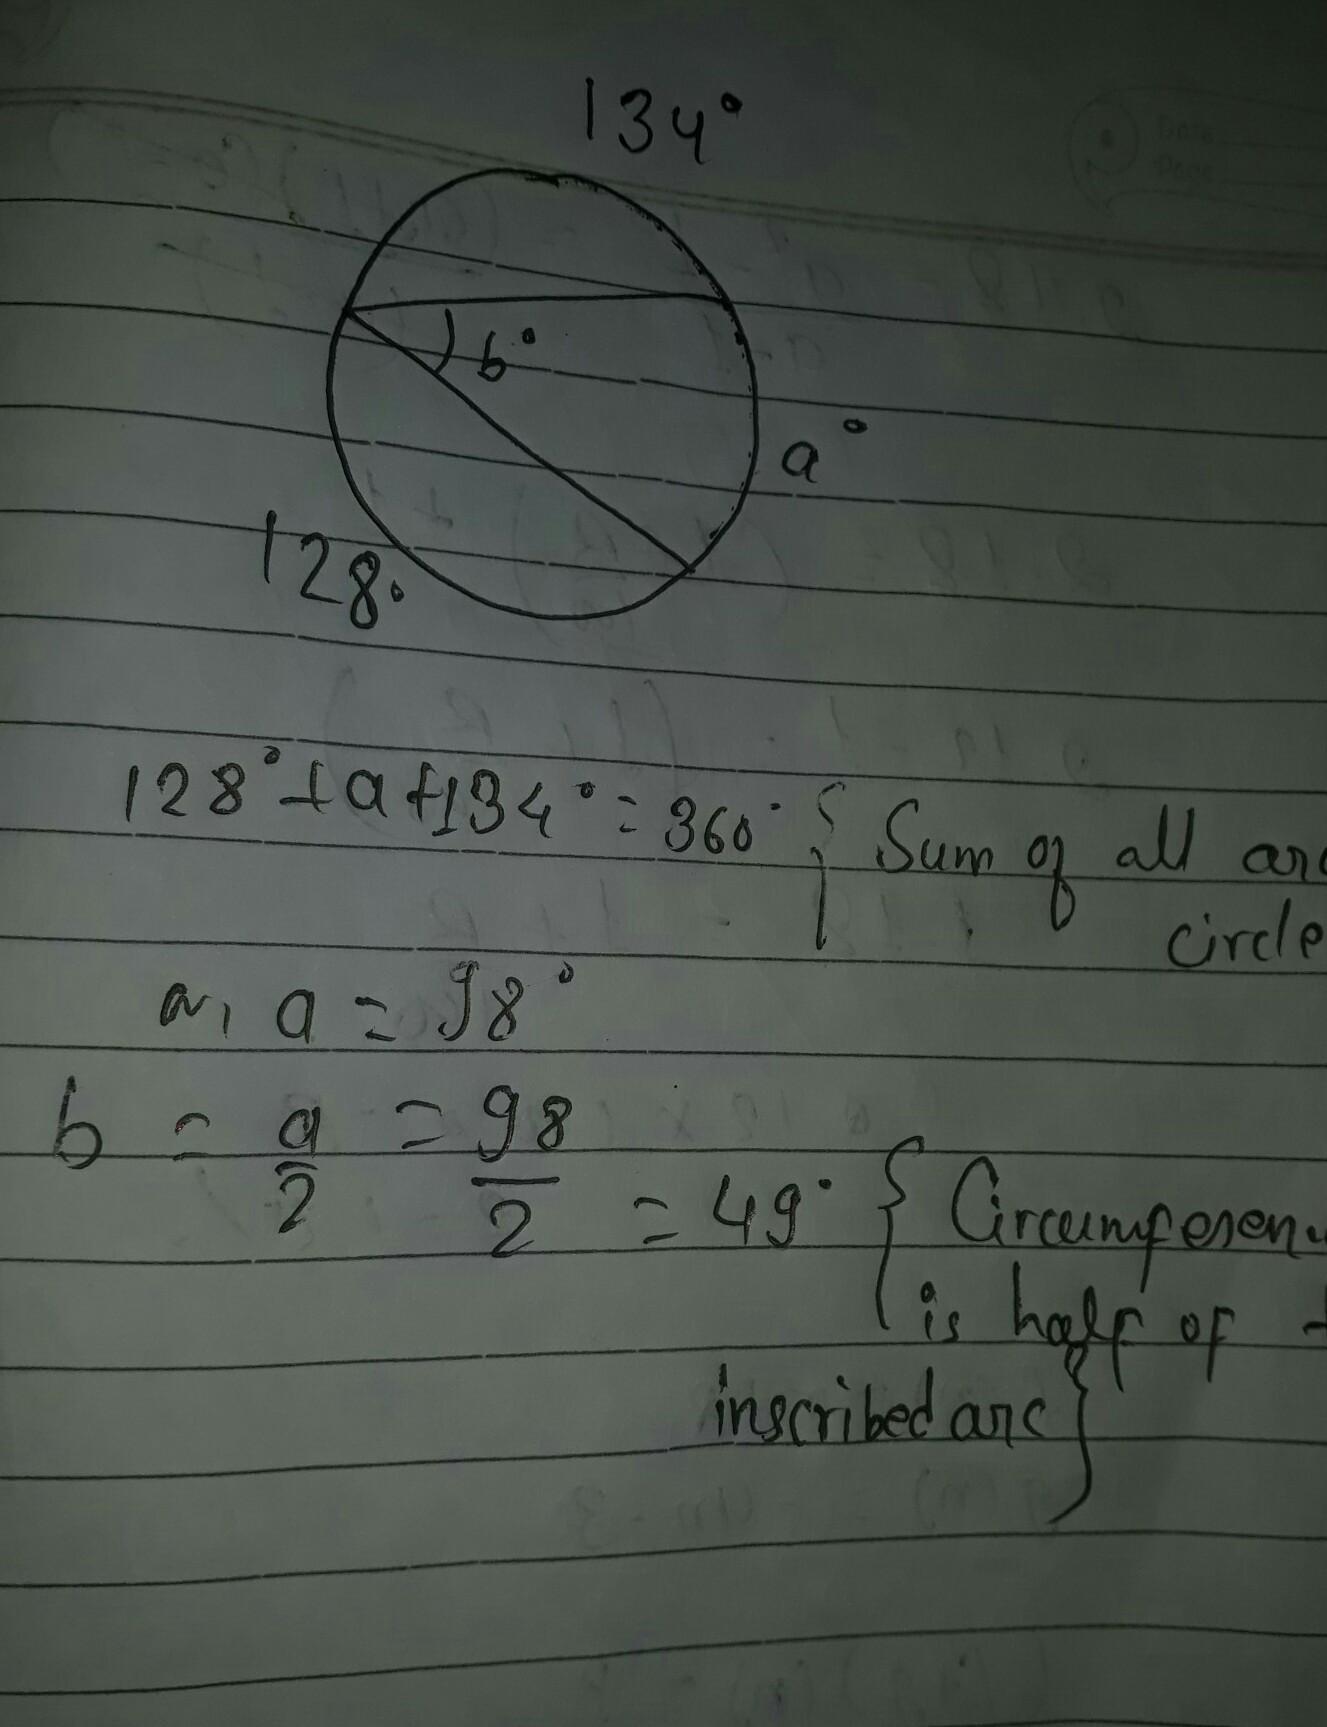 134°
b°
a°
128°
128° + a + 134° = 360° { Sum of all
circle
a = 98°
b = a/2 = 98/2 = 49° {
is half of
inscribed arc }